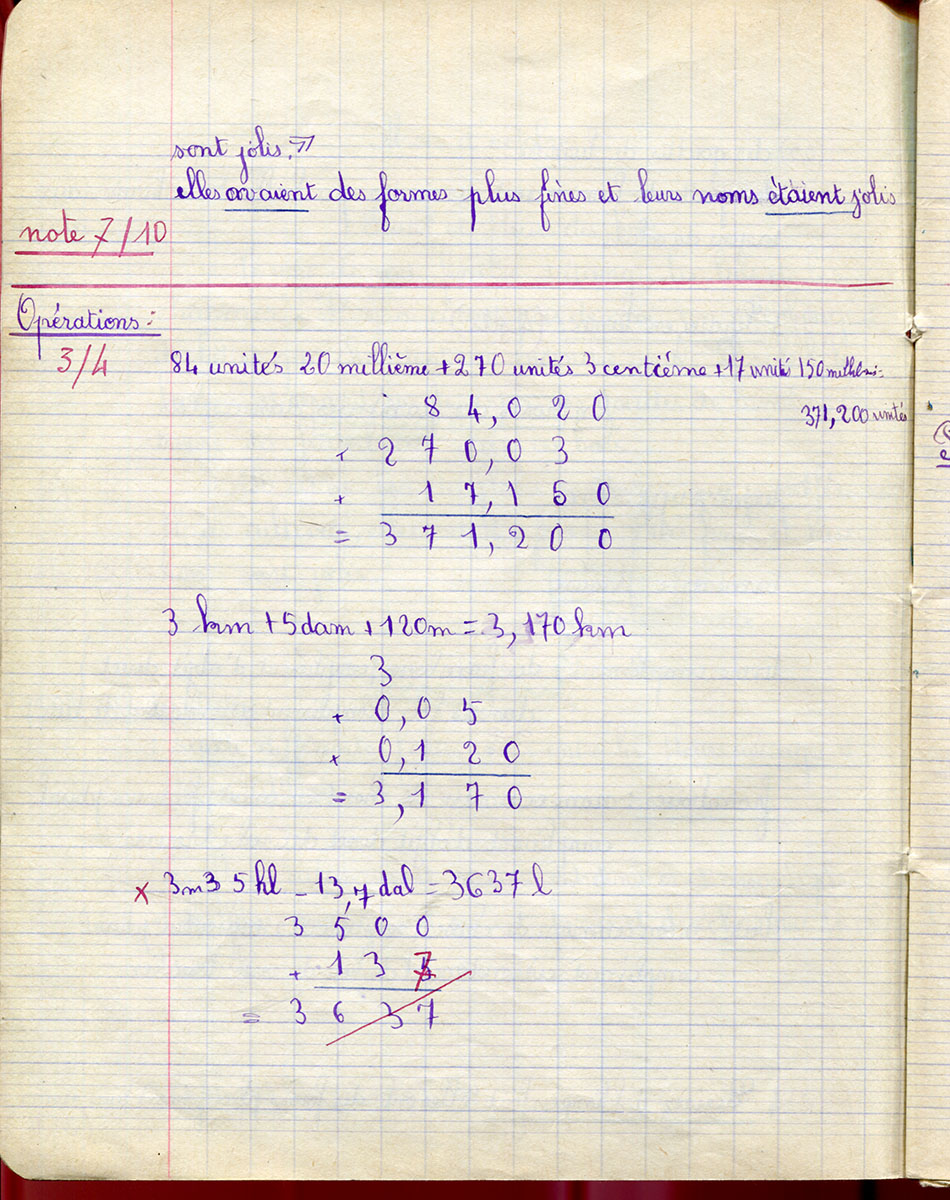 sont jolis. »
elles avaient des formes plus fines et leurs noms étaient jolis
note 7/10
Opérations:
3/4
84 unités 20 millième + 270 unités 3 centième + 17 unité 150
371,200 unités
8 4, 0 2 0
+ 2 7 0, 0 3
+ 1 7, 1 5 0
= 3 7 1, 2 0 0
3 km + 5 dam + 120 m = 3,170 km
3
+ 0,0 5
+ 0,1 2 0
= 3,1 7 0
x 3m3 5 hl - 13,7 dal = 3637 l
3 5 0 0
+ 1 3 7
= 3 6 3 7